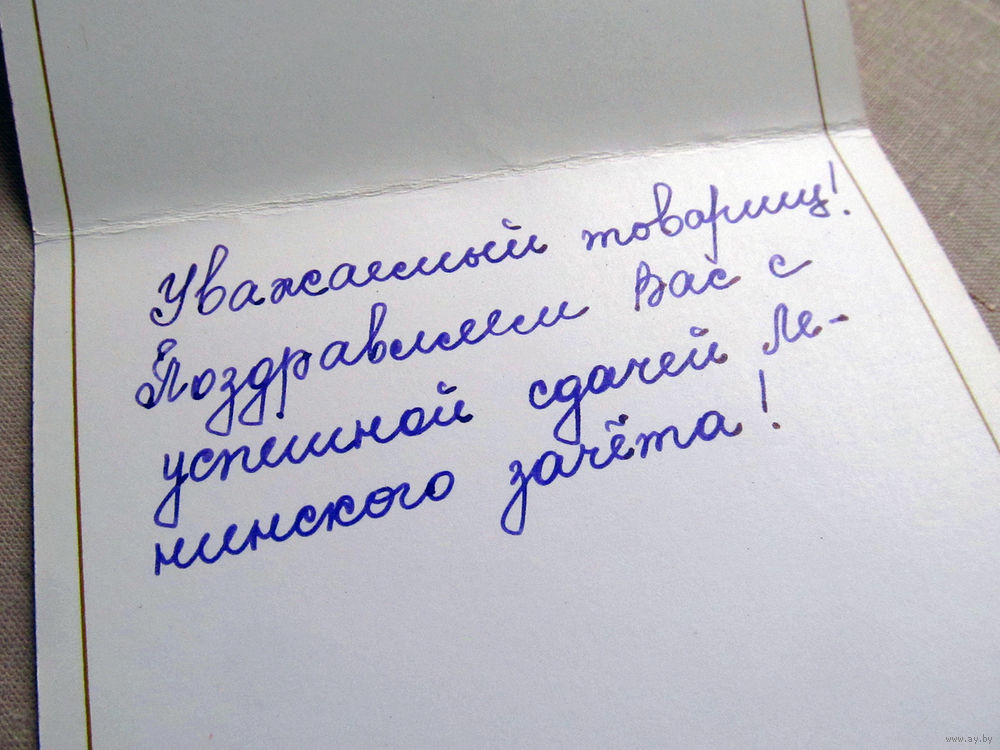 Уважаемый товарищ!
Поздравляем Вас с
успешной сдачей Ле-
нинского зачёта!
www.ay.by